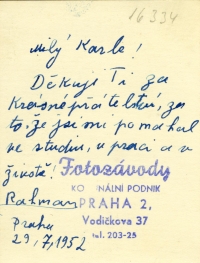 16334
Milý Karle!
Děkuji Ti za
krásné přátelství, za
to, že jsi mi pomáhal
ve studiu, v práci a v
životě!
Fotozávody
KOMUNÁLNÍ PODNIK
PRAHA 2,
Vodičkova 37
tel. 203-25
Rahman
Praha
29,7,1952